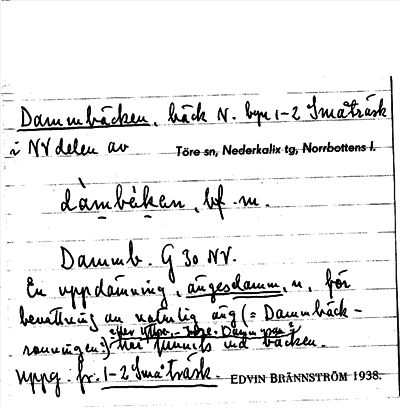 Dammbäcken, bäck N. byn 1-2 Småträsk
i NV delen av Töre sn, Nederkalix tg, Norrbottens l.
dàmbèkan, bf. m.
Dammb. G 30 NV.
En uppdämning, ängesdamm, n. för
bevattning av naturlig äng (= Dammbäck-
ronningen) har funnits vid bäcken.
Uppg. fr. 1-2 Småträsk. EDVIN BRÄNNSTRÖM 1938.